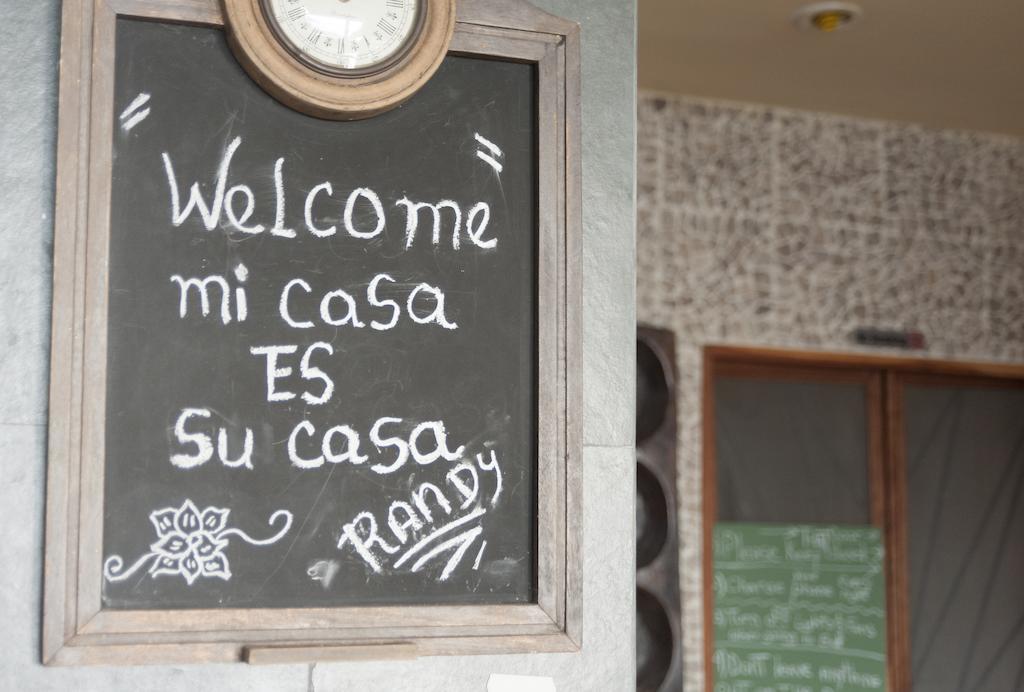 "Welcome"
mi casa
ES
Su casa
RANDY
Please keep
phone
Turn off
Don't leave anything